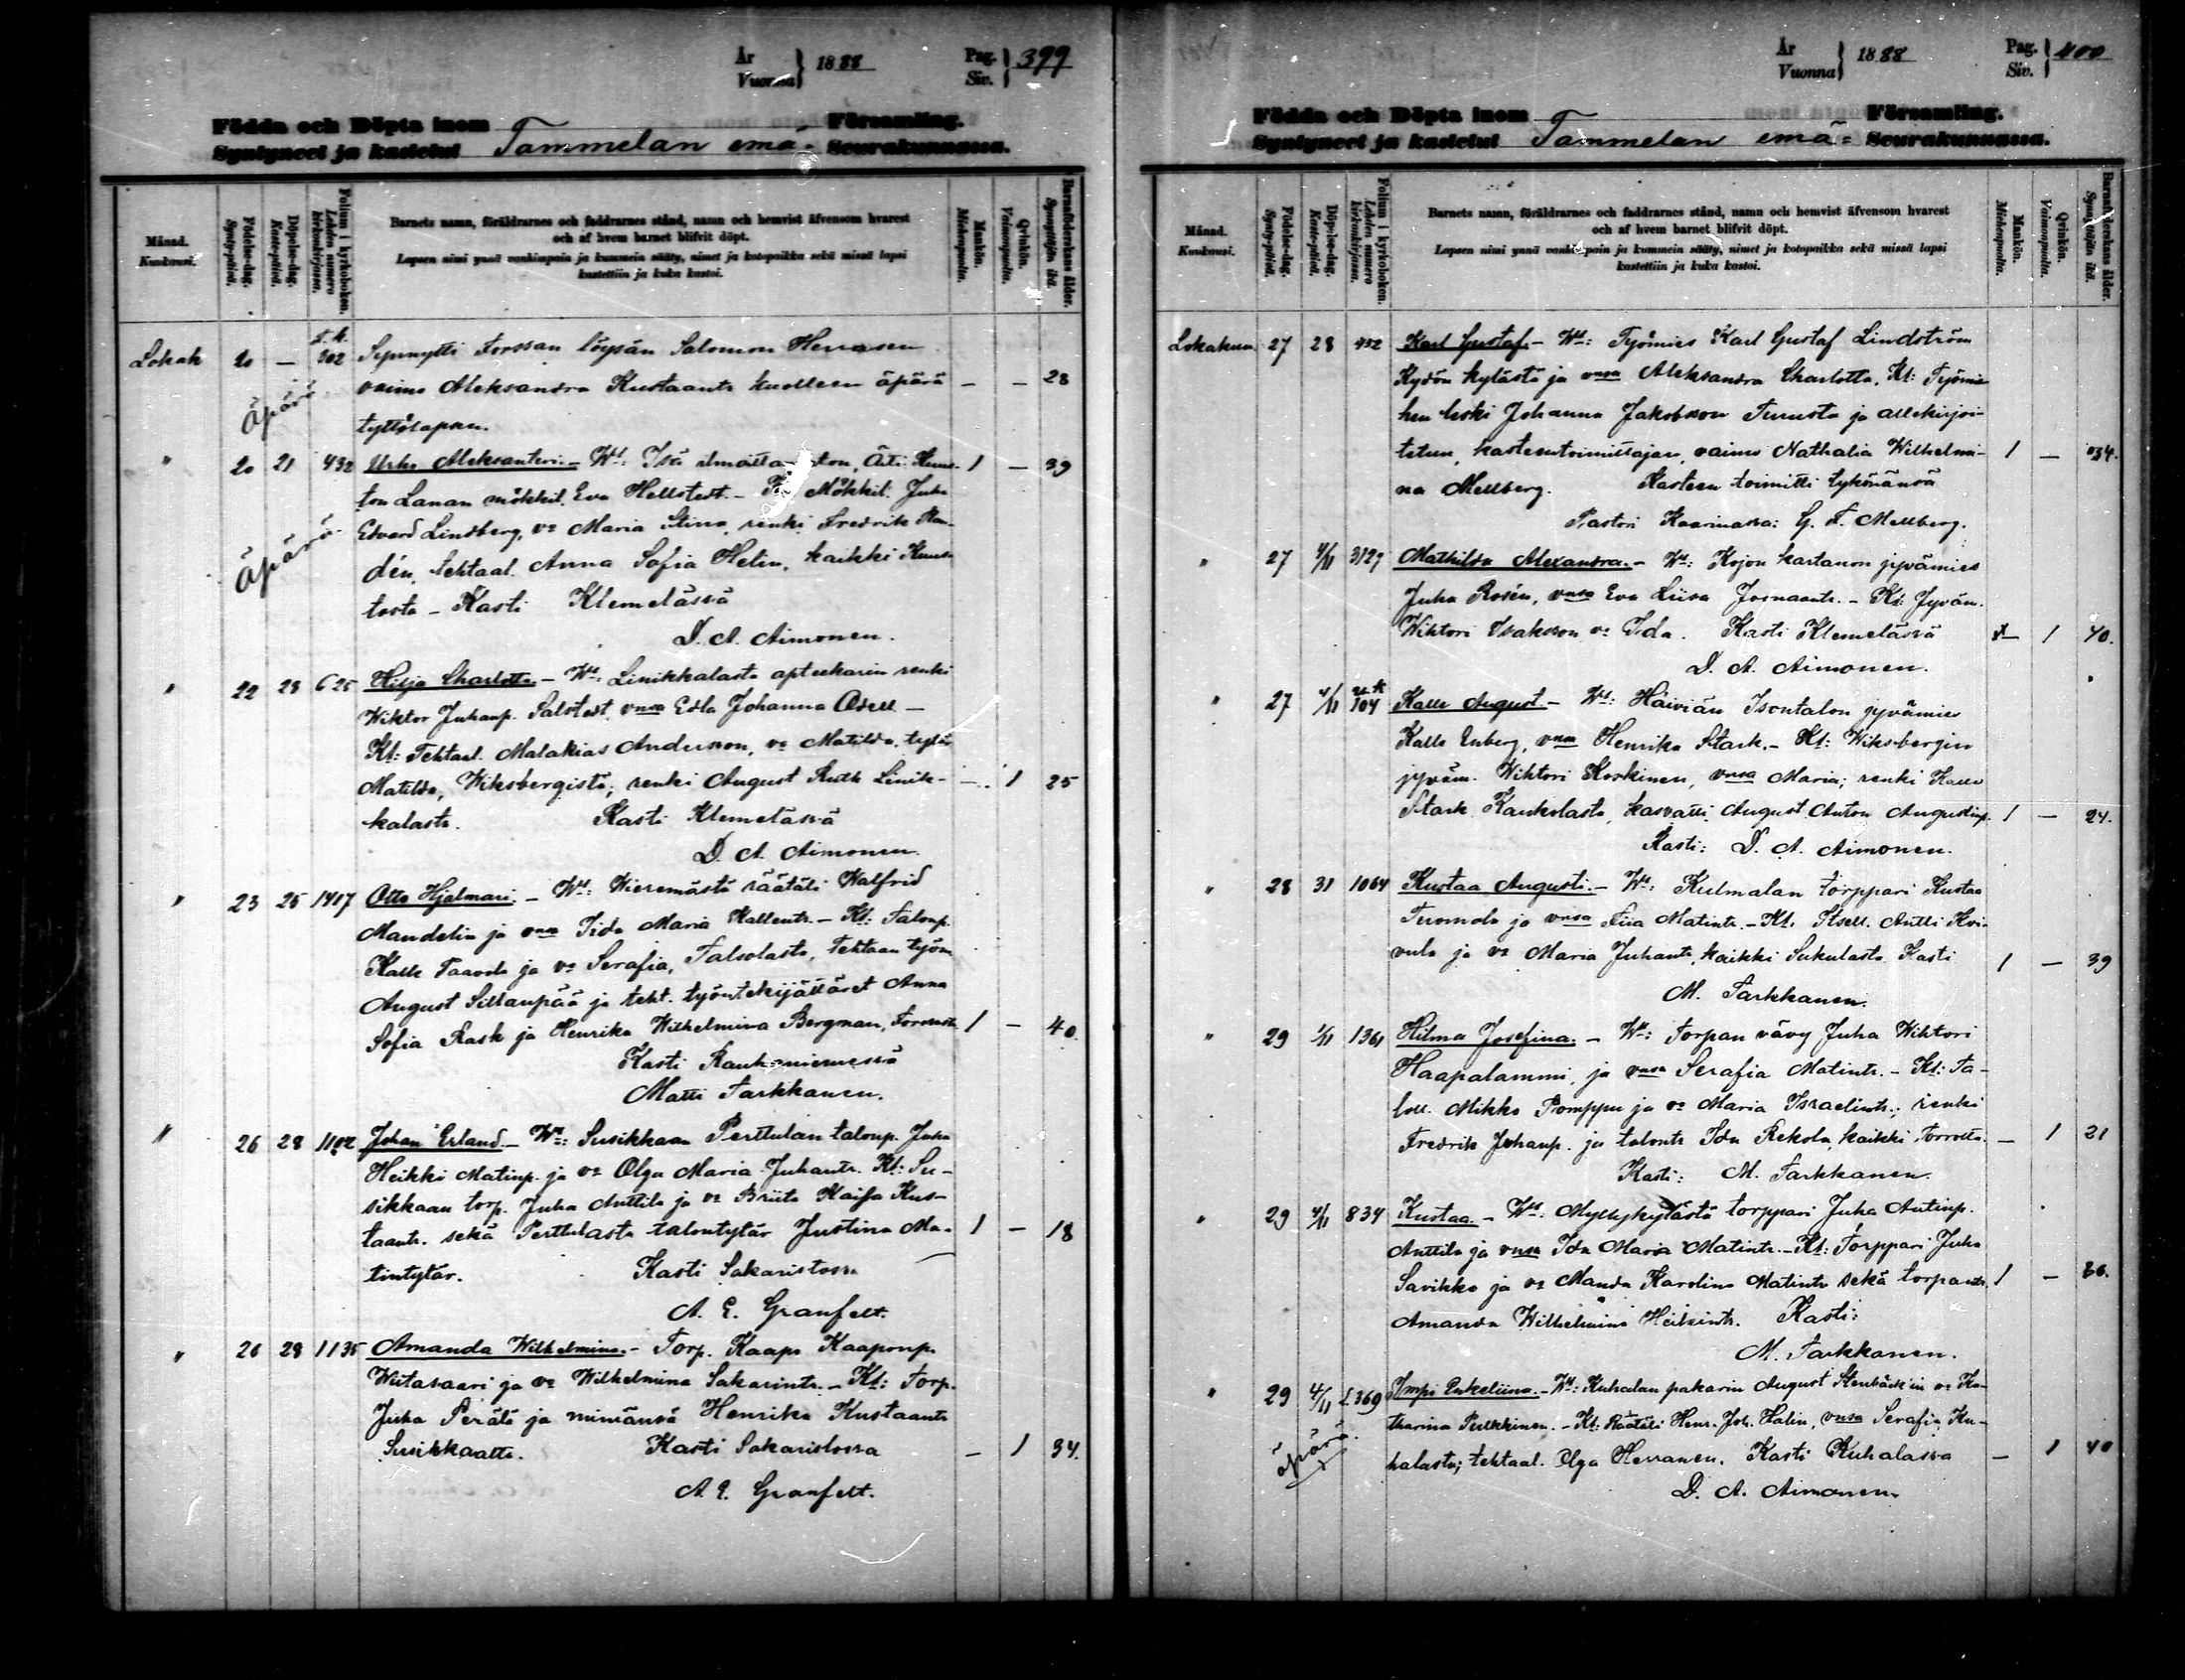 År Vuonna } 1888 Pag. Siv. } 399
Födda och Döpta inom Församling.
Syntyneet ja kastetut Tammelan emä- Seurakunnassa.
Månad. Kuukausi.
Födelse-dag. Synty-päivä.
Döpelse-dag. Kaste-päivä.
Folium i kyrkoboken. Lehden numero kirkonkirjassa.
Barnets namn, föräldrarnes och faddrarnes stånd, namn och hemvist äfvensom hvarest
och af hvem barnet blifvit döpt.
Lapsen nimi ynnä vanhimpain ja kummein sääty, nimet ja kotopaikka sekä missä lapsi
kastettiin ja kuka kastoi.
Mankön. Miehenpuolta.
Qvinkön. Vaimonpuolta.
Barnaföderskans ålder. Synnyttäjän ikä.
Lokak 20 — 302 Synnytti Forssan löysän Salomon Herrasen
vaimo Aleksandra Kustaantr kuolleen äpärä — — 28
äpärä
tyttölapsen.
" 20 21 432 Urho Aleksanteri. — Wt: Isä ilmoittamaton, Äiti: Kuus- 1 — 39
ton Lanan mökkil. Eva Hellstedt. — Mökkil. Juho
Edvard Lindberg, vo Maria Stina, renki Fredrik
äpärä
dén, tehtaal. Anna Sofia Helin, kaikki Kuus-
tosta — Kasti Klemelässä
D. A. Aimonen.
" 22 28 625 Hilja Charlotta. — Wt: Linikkalasta apteekarin renki
Wiktor Juhanp. Salstedt, vnsa Edla Johanna Odell —
Kt: Tehtaal. Malakias Andersson, vo Matilda, tytär
Matilda, Wiksbergistä; renki August Ruth Linik- — 1 25
kalasta. Kasti Klemelässä
D. A. Aimonen.
" 23 25 1407 Otto Hjalmari. — Wt: Wieremästä räätäli Walfrid
Mandelin ja vnsa Iida Maria Kallentr. — Kt: Talonp.
Kalle Taavola ja vo Serafia, Talsolasta, Tehtaan työm
August Sillanpää ja teht. työntekijättäret Anna
Sofia Rask ja Henrika Wilhelmina Bergman, Forssasta 1 — 40.
Kasti Rauhaniemessä
Matti Tarkkanen.
" 26 28 1102 Johan Erland. — Wt: Susikkaan Perttulan talonp. Juho
Heikki Matinp. ja vo Olga Maria Juhantr. Kt: Su-
sikkaan torp. Juha Anttila ja vo Briita Kaisa Kus-
taantr. sekä Perttulasta talontytär Justina Ma- 1 — 18
tintytär. Kasti Sakaristossa
A. E. Granfelt.
" 26 28 1135 Amanda Wilhelmina. — Torp. Kaapo Kaaponp.
Wiitasaari ja vo Wilhelmina Sakarintr. — Kt: Torp.
Juha Perälä ja miniänsä Henrika Kustaantr
Susikkaalta. Kasti Sakaristossa — 1 34.
A. E. Granfelt.
År Vuonna } 1888 Pag. Siv. } 400
Födda och Döpta inom Församling.
Syntyneet ja kastetut Tammelan emä- Seurakunnassa.
Månad. Kuukausi.
Födelse-dag. Synty-päivä.
Döpelse-dag. Kaste-päivä.
Folium i kyrkoboken. Lehden numero kirkonkirjassa.
Barnets namn, föräldrarnes och faddrarnes stånd, namn och hemvist äfvensom hvarest
och af hvem barnet blifvit döpt.
Lapsen nimi ynnä vanhimpain ja kummein sääty, nimet ja kotopaikka sekä missä lapsi
kastettiin ja kuka kastoi.
Mankön. Miehenpuolta.
Qvinkön. Vaimonpuolta.
Barnaföderskans ålder. Synnyttäjän ikä.
Lokakuu 27 28 452 Karl Gustaf. — Wt: Työmies Karl Gustaf Lindström
Kydön kylästä ja vnsa Aleksandra Charlotta. Kt: Työmie-
hen leski Johanna Jakobsson Turusta ja allekirjoi-
tetun, kasteentoimittajan, vaimo Nathalia Wilhelmi- 1 — 34.
na Mellberg. Kasteen toimitti tykönänsä
Pastori Kaarinassa: G. F. Mellberg.
" 27 4/11 3129 Mathilda Alexandra. — Wt: Kojon kartanon jyvämies
Juha Rosén, vnsa Eva Liisa Joonaantr. — Kt: Jyväm.
Wihtori Isaksson vo Ida. Kasti Klemelässä — 1 40.
D. A. Aimonen.
" 27 4/11 104 Kalle August. — Wt: Häiviän Isontalon jyvämies
Kalle Enberg, vnsa Henrika Stark. — Kt: Wiksbergin
jyväm. Wihtori Koskinen, vnsa Maria; renki Kalle
Stark Kaukolasta, kasvatti August Anton Augustinp. 1 — 24.
Kasti: D. A. Aimonen.
" 28 31 1064 Kustaa Augusti. — Wt: Kulmalan torppari Kustaa
Tuomola ja vnsa Fiia Matintr. — Kt. Itsell. Antti Koi-
vula ja vo Maria Juhantr, kaikki Sukulasta. Kasti 1 — 39
M. Tarkkanen.
" 29 1/11 1361 Hilma Josefina. — Wt: Torpan vävy Juha Wihtori
Haapalammi, ja vnsa Serafia Matintr. — Kt: Ta-
loll. Mikko Pomppu ja vo Maria Israelintr.; renki
Fredrik Johanp. ja talontr Ida Rekola, kaikki Torrolta. — 1 21
Kasti: M. Tarkkanen.
" 29 4/11 834 Kustaa. — Wt. Myllykylästä torppari Juha Antinp.
Anttila ja vnsa Ida Maria Matintr. — Kt: Torppari Juha
Savikko ja vo Manda Karolina Matintr sekä torpantr. 1 — 36.
Amanda Wilhelmina Heikintr. Kasti:
M. Tarkkanen.
" 29 4/11 369 Impi Enkeliina. — Wt: Kuhalan pakarin August Stenbäck'in vo Ka-
tharina Pulkkinen. — Kt: Räätäli Henr. Joh. Halin, vnsa Serafia Ku-
äpärä.
halasta; tehtaal. Olga Herranen. Kasti Kuhalassa — 1 40
D. A. Aimonen.